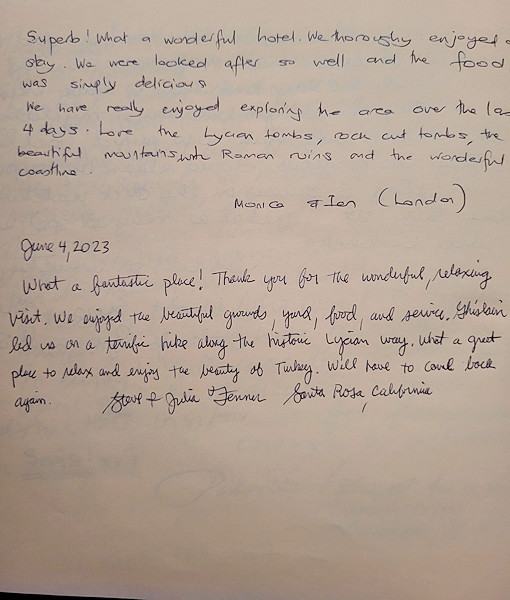 Superb! What a wonderful hotel. We thoroughy enjoyed o
stay. We were looked after so well and the food
was simply delicious
We have really enjoyed exploring the area over the las
4 days. Love the Lycian tombs, rock cut tombs, the
beautiful mountains, with Roman ruins and the wonderful
coastline.
Monica & Ian (London)
June 4, 2023
What a fantastic place! Thank you for the wonderful, relaxing
visit. We enjoyed the beautiful grounds, yard, food, and service. Ghislain
led us on a terrific hike along the historic Lycian way. What a great
place to relax and enjoy the beauty of Turkey. Will have to come back
again. Steve & Julia Fenner Santa Rosa, California